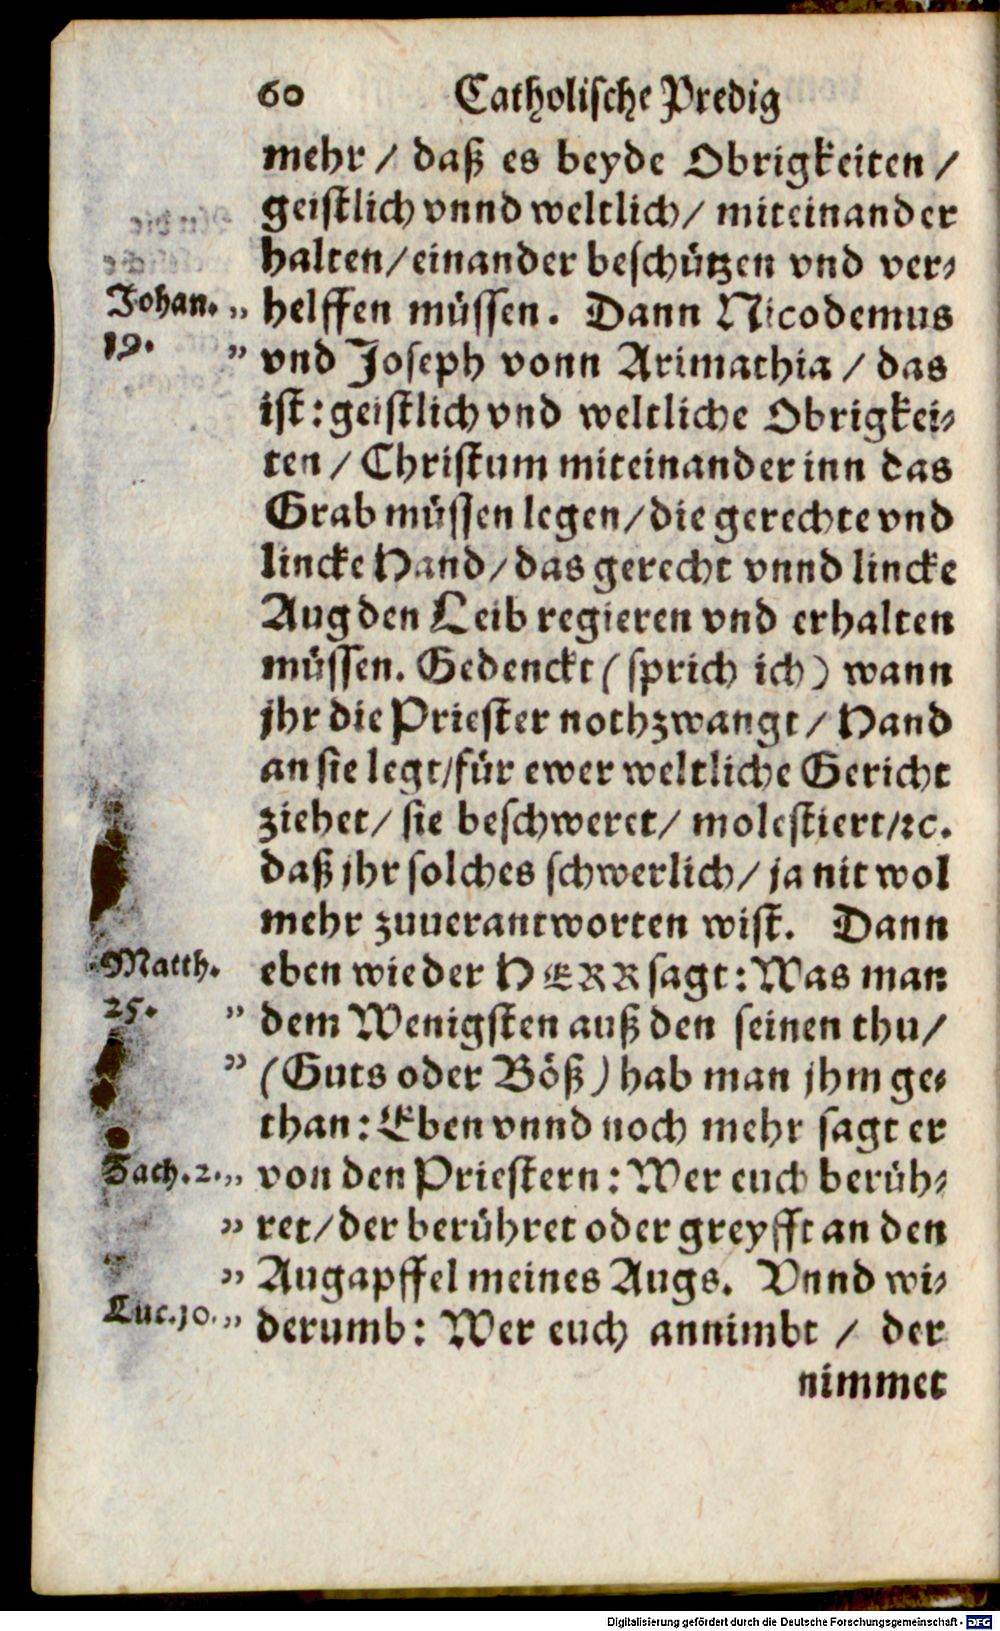 60 Catholische Predig
mehr / daß es beyde Obrigkeiten /
geistlich vnnd weltlich / miteinander
halten / einander beschützen vnd ver-
Johan. „ helffen müssen. Dann Nicodemus
19. „ vnd Joseph vonn Arimathia / das
ist : geistlich vnd weltliche Obrigkei-
ten / Christum miteinander inn das
Grab müssen legen / die gerechte vnd
lincke Hand / das gerecht vnnd lincke
Aug den Leib regieren vnd erhalten
müssen. Gedenckt ( sprich ich ) wann
jhr die Priester nothzwangt / Hand
an sie legt / für ewer weltliche Gericht
ziehet / sie beschweret / molestiert / ꝛc.
daß jhr solches schwerlich / ja nit wol
mehr zuuerantworten wist. Dann
Matth. eben wie der HERR sagt : Was man
25. „ dem Wenigsten auß den seinen thu /
„ (Guts oder Böß) hab man jhm ge-
than : Eben vnnd noch mehr sagt er
Zach. 2. „ von den Priestern : Wer euch berüh-
„ ret / der berühret oder greyfft an den
„ Augapffel meines Augs. Vnnd wi-
Luc. 10. „ derumb : Wer euch annimbt / der
nimmet
Digitalisierung gefördert durch die Deutsche Forschungsgemeinschaft - DFG